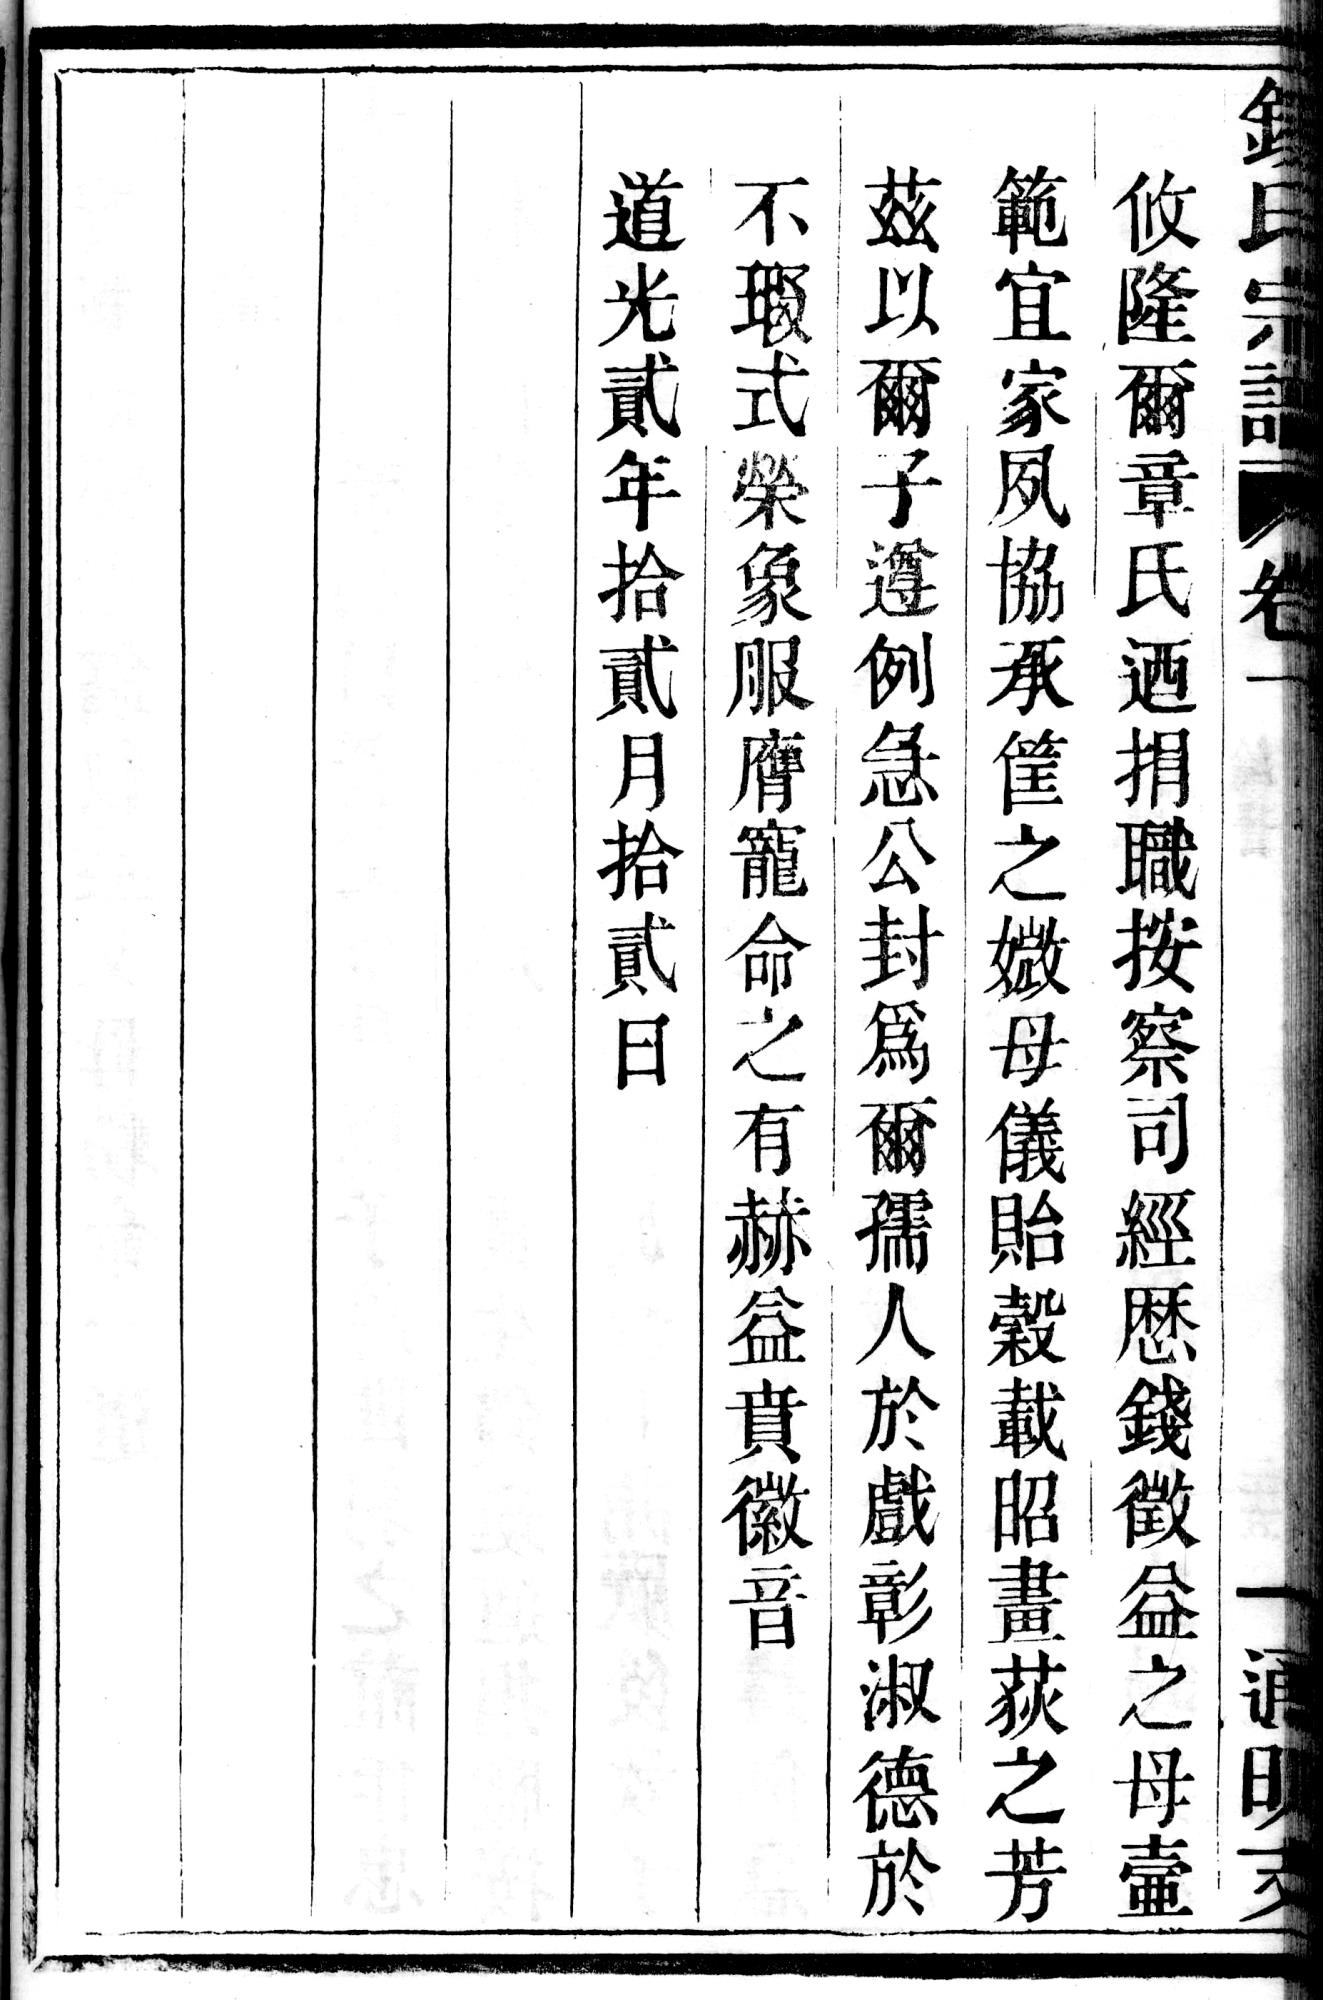 錢氏宗譜 卷一
攸隆爾章氏迺捐職按察司經歷錢徵益之母壼
範宜家夙協承筐之媺母儀貽穀載昭畫荻之芳
茲以爾子遵例急公封爲爾孺人於戲彰淑德於
不瑕式榮象服膺寵命之有赫益賁徽音
道光貳年拾貳月拾貳日